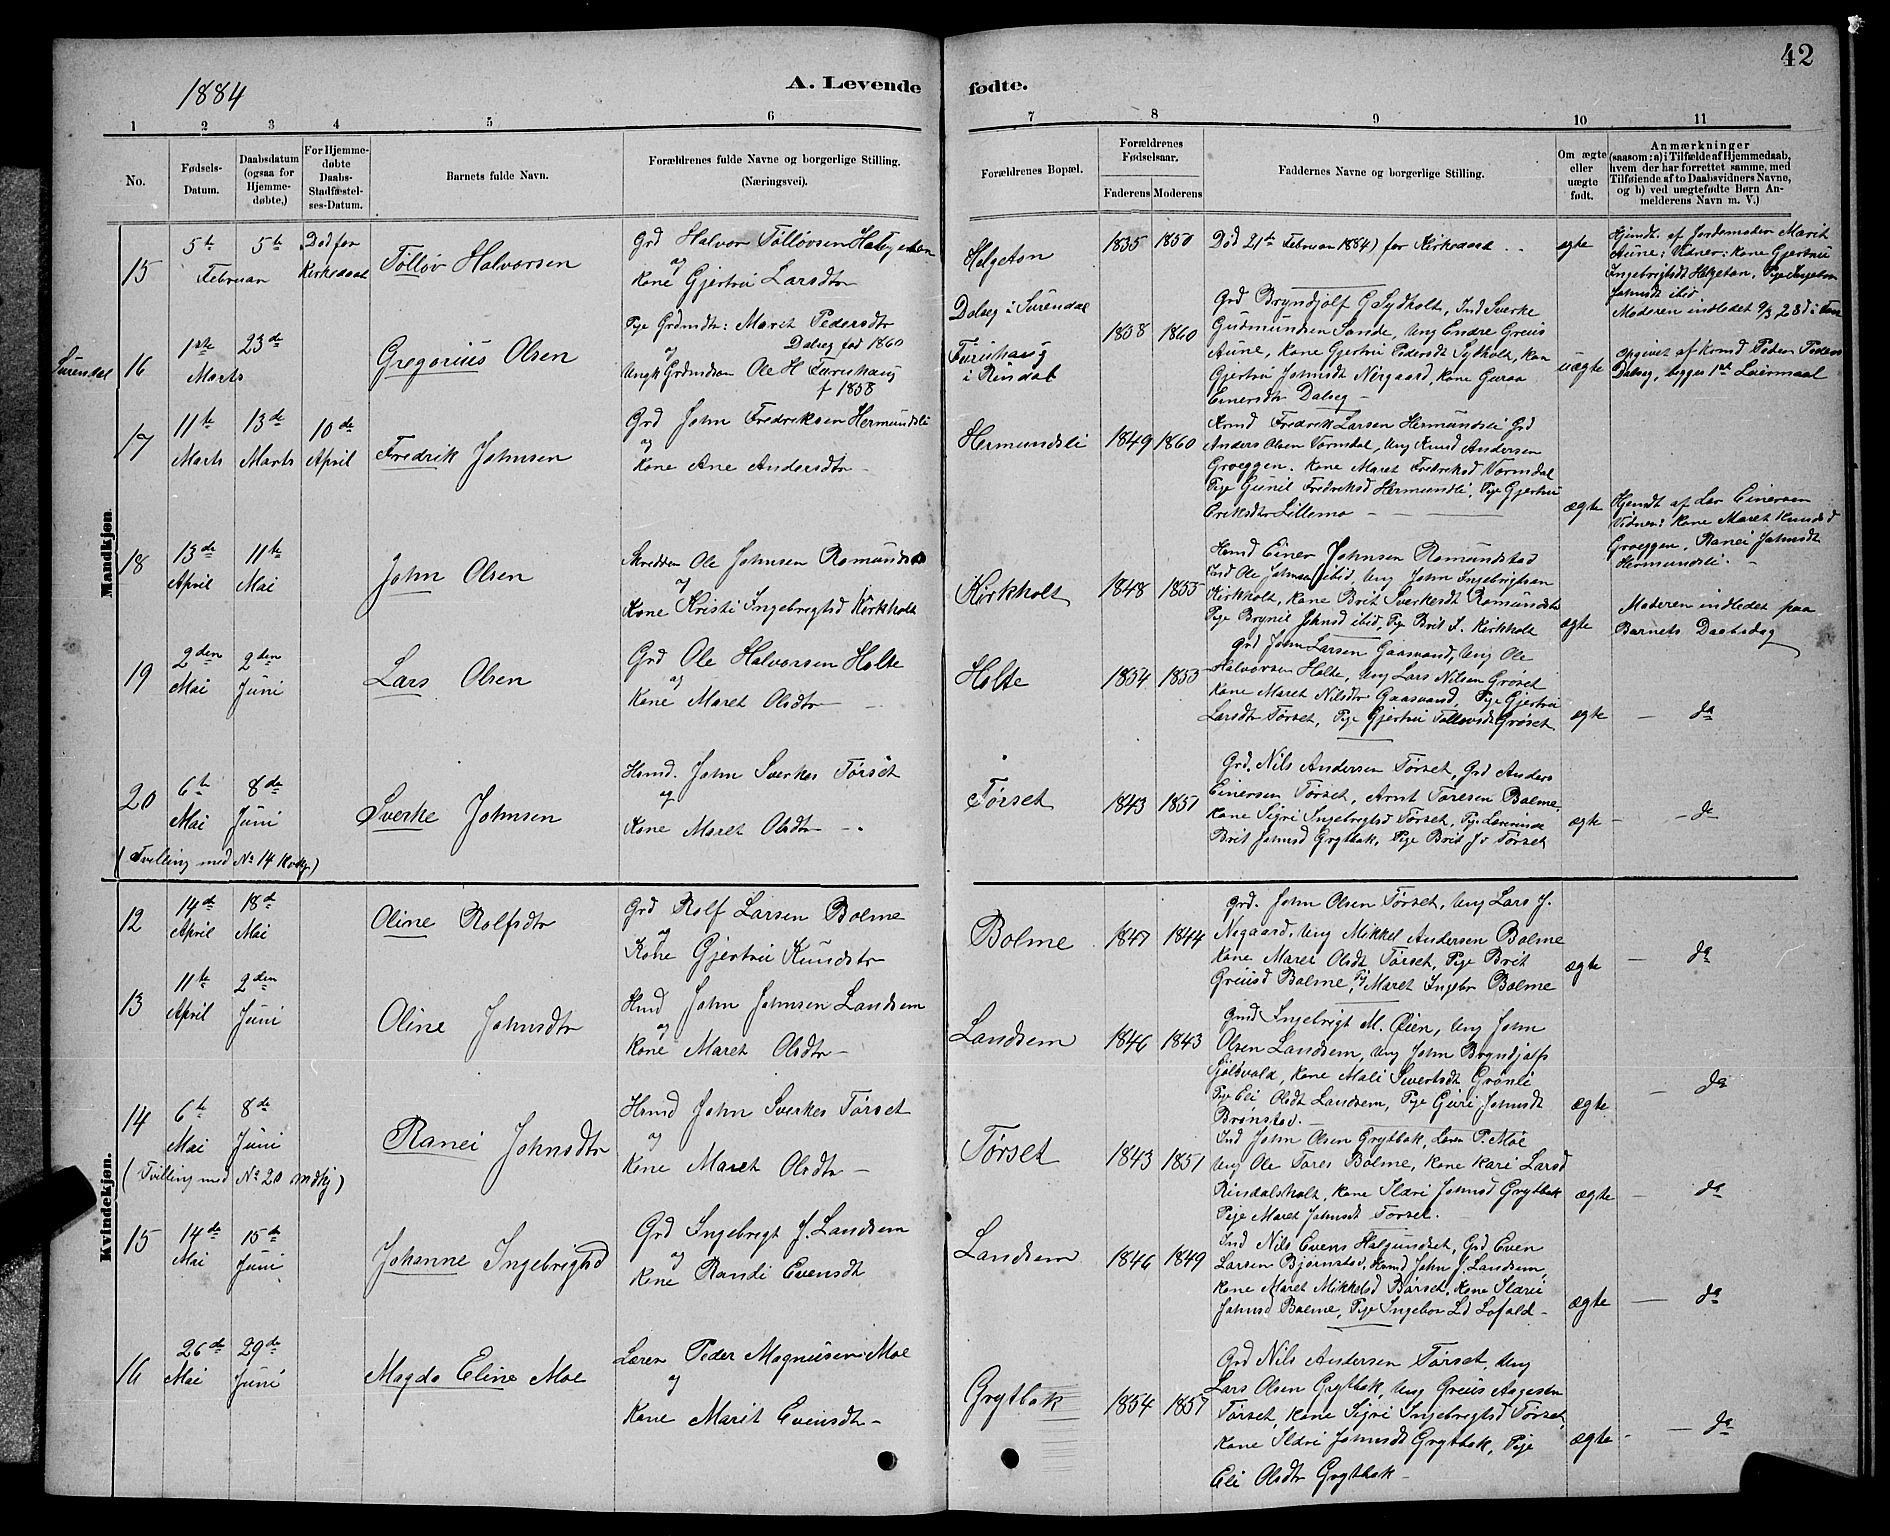 42
1884
A. Levende fødte.
1 2 3 4 5 6 7 8 9 10 11
No.
Fødsels-
Datum.
Daabsdatum
(ogsaa for
Hjemme-
døbte.)
For Hjemme-
døbte
Daabs-
Stadfæstel-
ses-Datum.
Barnets fulde Navn.
Forældrenes fulde Navne og borgerlige Stilling.
(Næringsvei).
Forældrenes Bopæl.
Forældrenes
Fødselsaar.
Faderens
Moderens
Faddernes Navne og borgerlige Stilling.
Om ægte
eller
uægte
født.
Anmærkninger
(saasom: a) i Tilfælde af Hjemmedaab,
hvem der har forrettet samme, med
Tilføiende af to Daabsvidners Navne,
og b) ved uægtefødte Børn An-
melderens Navn m. V.)
Mandkjøn.
15
5te
Februar
5te
Død før
Kirkedaab
Tølløv Halvorsen
Grd Halvor Tølløvsen Helgeton
og
Kone Gjertru Larsdtr
Helgeton
1835 1850
Død 21de Februar 1884) før Kirkedaab
ægte
Hjemdt. af Jordemoder Marit
Aune: Vidner: Kone Gjertru
Ingebrigtsdt Helgeton, Pige Ingebor
Johnsdt ibid
Surendal
16
1ste
Marts
23de
Gregorius Olsen
Pige Grdmdtr: Maret Pedersdtr
Dalseg fød 1860
og
Ungk Grdmdsøn Ole H Furuhaug
f 1838
Dalseg i Surendal
Furuhaug
i Rindal
1838 1860
Grd Bryndjolf G Sydholt, Ind Sverke
Gudmundsen Sande, Ung Endre Greus
Aune, Kone Gjertru Pedersdt Sydholt, Kone
Gjertru Johnsdt Nirgaard, Kone Guraa
Einersdtr Dalseg -
uægte
Moderen indledet 9/3
opgivet af Kaard Peder Peders
Dalseg, begges 1st Leiermaal
17
11te
Marts
13de
Marts
10de
April
Fredrik Johnsen
Grd John Fredriksen Hermundsli
og
Kone Ane Andersdtr -
Hermundsli
1849 1860
Fredrik Larsen Hermundsli Grd
Anders Olsen Vormdal, Ung Knud Andersen
Groeggen. Kone Maret Fredriksd Vormdal
Pige Gunil Fredriksd Hermundli, Pige Gjertru
Eriksdtr Lillemo -
ægte
Hjemdt af Lær Einersen
Vidner: Kone Maret Knudsd
Groeggen, Ranei Johnsdt
Hermundsli. -
18
13de
April
11te
Mai
John Olsen
Skrædder Ole Johnsen Romundstad
og
Kone Kristi Ingebrigtsd Kirkholt
Kirkholt
1848 1855
Hsmd Einer Johnsen Romundstad
Ind Ole Johnsen ibid, Ung John Ingebrigtsen
Kirkholt, Kone Brit Sverkesdt Romundsta
Pige Brynil Johnsd ibid, Pige Brit I. Kirkholt
ægte
Moderen indledet paa
Barnets Daabsdag
19
2den
Mai
2den
Juni
Lars Olsen
Grd Ole Halvorsen Holte
og
Kone Maret Olsdtr -
Holte
1834 1853
Grd John Larsen Gaasvand, Ung Ole
Halvorsen Holte, Ung Lars Nilsen Grøset
Kone Maret Nilsdtr Gaasvand, Pige Gjertru
Larsdtr Tørset, Pige Gjertru Tollovsdt Grøset
ægte - do
20
6te
Mai
8de
Juni
Sverke Johnsen
(Tvilling med No 14 Kvkj)
Hsmd. John Sverkes Tørset
og
Kone Maret Olsdtr -
Tørset
1843 1851
Grd. Nils Andersen Tørset, Grd Anders
Einersen Tørset, Arnt Toresen Bolme,
Kone Sigri Ingebrigtsd Tørset, Pige
Brit Johnsd Grytbak, Pige Brit J. Tørset
ægte - do
Kvindekjøn.
12
14de
April
18de
Mai
Oline Rolfsdtr
Grd Rolf Larsen Bolme
og
Kone Gjertru Knudsdtr -
Bolme
1847 1844
Grd. John Olsen Tørset, Ung Lars J.
Negaard, Ung Mikkel Andersen Bolme
Kone Maret Olsdt Tørset, Pige Brit
Greusd Bolme, Pi Maret Ingebr Bolme
ægte - do
13
11te
April
2den
Juni
Oline Johnsdtr
Hsmd John Johnsen Landsem
og
Kone Maret Olsdtr -
Landsem
1846 1843
Gmd Ingebrigt M. Øien, Ung John
Olsen Landsem, Ung John Bryndjolfs
Gjølsvold, Kone Mali Sivertsdt Grønli
Pige Eli Olsdt Landsem, Pige Guri Johnsdt
Brønstad. -
ægte - do
14
6te
Mai
8de
Juni
Ranei Johnsdtr
(Tvilling med No 20 Mdkj)
Hsmd John Sverkes Tørset
og
Kone Maret Olsdtr -
Tørset
1843 1851
Ind John Olsen Grytbak, Lærer P. Moe
Ung Ole Tores Bolme, Kone Kari Larsd
Rindalsholt, Kone Ildri Johnsd Grytbak
Pige Maret Johnsdt Tørset.
ægte - do
15
14de
Mai
15de
Juni
Johanne Ingebrigtsd
Grd Ingebrigt J. Landsem
og
Kone Randi Evensdt
Landsem
1846 1849
Ind Nils Evens Halgundset, Grd Even
Larsen Bjørnstad, Hsmd John J. Landsem,
Kone Maret Mikkelsd Børset, Kone Ildri
Johnsd Bolme, Pige Ingebor Ld Lofald -
ægte - do
16
26de
Mai
29de
Juni
Magda Eline Moe
Lærer Peder Magnusen Moe
og
Kone Marit Evensdtr -
Grytbak
1854 1857
Grd Nils Andersen Tørset, Ung
Lars Olsen Grytbak, Ung Greus Aagesen
Tørset, Kone Sigri Ingebrigtsd Tørset,
Kone Ildri Johnsdt Grytbak, Pige
Eli Olsdtr Grytbak -
ægte - do